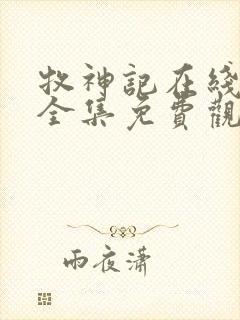 牧神記在綫
全集免費觀
雨夜瀟